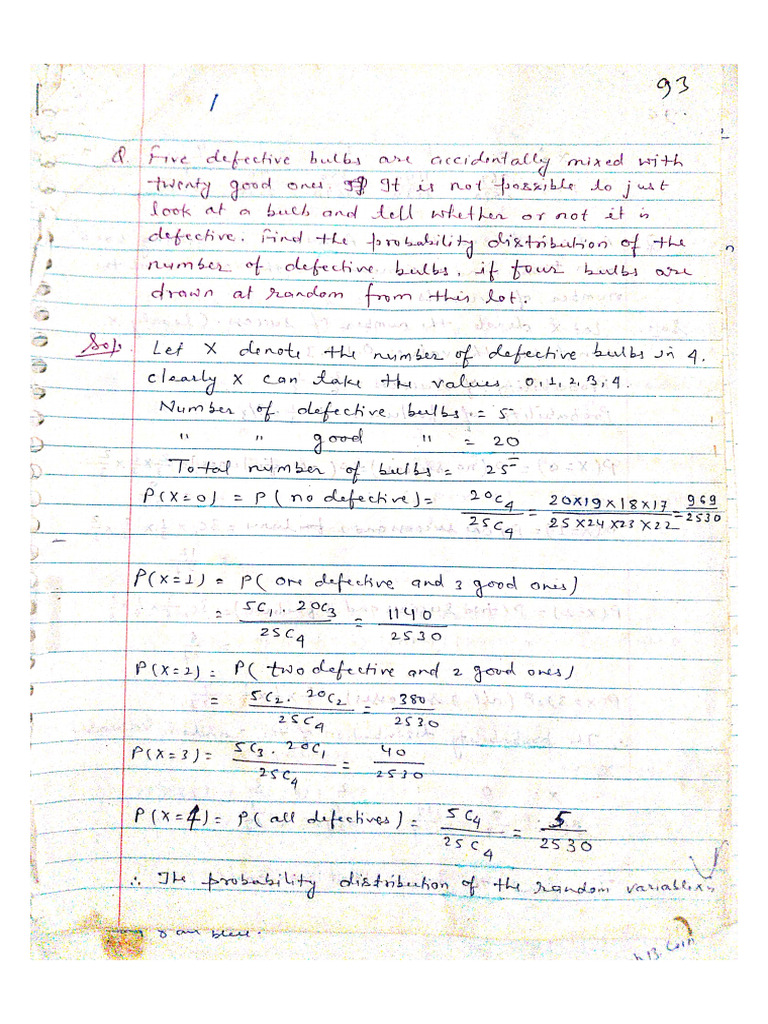 93
1
Q. Five defective bulbs are accidentally mixed with
twenty good ones. It is not possible to just
look at a bulb and tell whether or not it is
defective. Find the probability distribution of the
number of defective bulbs, if four bulbs are
drawn at random from this lot.
Sol. Let X denote the number of defective bulbs in 4.
clearly X can take the values 0, 1, 2, 3, 4.
Number of defective bulbs = 5
" " good " = 20
Total number of bulbs = 25
P(X=0) = P(no defective) = 20C4/25C4 = 20×19×18×17/25×24×23×22 = 969/2530
P(X=1) = P(one defective and 3 good ones)
= 5C1 · 20C3/25C4 = 1140/2530
P(X=2) = P(two defective and 2 good ones)
= 5C2 · 20C2/25C4 = 380/2530
P(X=3) = 5C3 · 20C1/25C4 = 40/2530
P(X=4) = P(all defectives) = 5C4/25C4 = 5/2530
∴ The probability distribution of the random variable X is
Coin